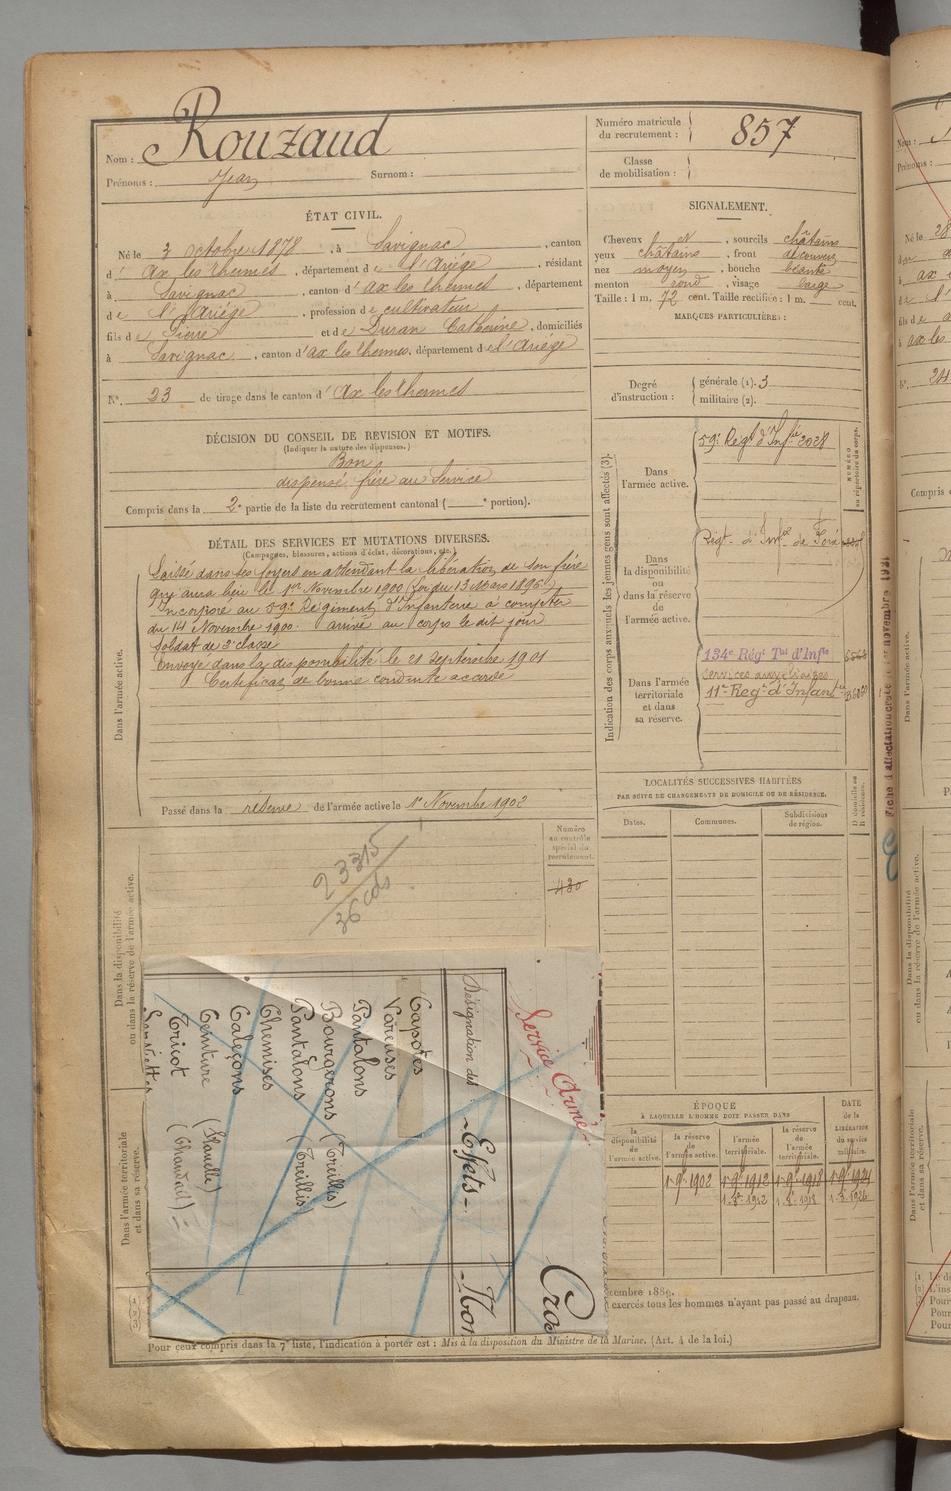 Nom : Rouzaud
Prénoms : Jean Surnom :
Numéro matricule du recrutement : 857
Classe de mobilisation :
ÉTAT CIVIL.
Né le 3 octobre 1878, à Savignac, canton
d' Ax les thermes, département de l'Ariége, résidant
à Savignac, canton d' ax les thermes, département
de l'Ariége, profession de cultivateur
fils de Pierre et de Duran Catherine, domiciliés
à Savignac, canton d' ax les thermes, département de l'ariége
N°. 23 de tirage dans le canton d' Ax les thermes
SIGNALEMENT.
Cheveux et, sourcils châtains
yeux châtains, front découvert
nez moyen, bouche béante
menton rond, visage large
Taille : 1 m. 72 cent. Taille rectifiée : 1 m. cent.
MARQUES PARTICULIÈRES :
Degré d'instruction : générale (1). 3
militaire (2).
DÉCISION DU CONSEIL DE REVISION ET MOTIFS.
(Indiquer la nature des dispenses.)
Bon
dispensé frère au Service
Compris dans la 2e partie de la liste du recrutement cantonal ( e portion).
DÉTAIL DES SERVICES ET MUTATIONS DIVERSES.
(Campagnes, blessures, actions d'éclat, décorations, etc.)
Dans l'armée active.
Laissé dans ses foyers en attendant la libération de son frère
qui aura lieu le 1er Novembre 1900 (Loi du 13 Mars 1896)
Incorporé au 59e Régiment d'Infanterie à compter
du 14 Novembre 1900. arrivé au corps le dit jour
Soldat de 2e classe
Envoyé dans la disponibilité le 21 Septembre 1901
Certificat de bonne conduite accordé
Passé dans la réserve de l'armée active le 1er Novembre 1902
Indication des corps auxquels les jeunes gens sont affectés (3).
NUMÉRO au répertoire du corps.
Dans l'armée active.
59e Régt d'Infie 2028
Dans la disponibilité ou dans la réserve de l'armée active.
Régt d'Infie de Foix
Dans l'armée territoriale et dans sa réserve.
134e Régt Tal d'Infie
services auxiliaires
11e Régt d'Infanterie
Fiche d'affectation novembre 1921
LOCALITÉS SUCCESSIVES HABITÉES
PAR SUITE DE CHANGEMENTS DE DOMICILE OU DE RÉSIDENCE.
Dates. Communes. Subdivisions de région. D domicile ou R résidence.
Dans la disponibilité ou dans la réserve de l'armée active.
Numéro au contrôle spécial du recrutement.
430
23315
36 cds
Dans l'armée territoriale et dans sa réserve.
Service Armé
Désignation des -Effets-
Capotes
Vareuses
Pantalons
Bourgerons (Treillis)
Pantalons (Treillis)
Chemises
Caleçons
Ceinture (Flanelle)
Tricot (Chandail)
Serviettes
ÉPOQUE
À LAQUELLE L'HOMME DOIT PASSER DANS
la disponibilité de l'armée active.
la réserve de l'armée active.
l'armée territoriale.
la réserve de l'armée territoriale.
DATE de la LIBÉRATION du service militaire.
1.9bre 1902 1.9bre 1912 1.9bre 1918 1.9bre 1924
1.8bre 1912 1.8bre 1918 1.8bre 1926
cembre 1889.
exercés tous les hommes n'ayant pas passé au drapeau.
Pour ceux compris dans la 7e liste, l'indication à porter est : Mis à la disposition du Ministre de la Marine. (Art. 4 de la loi.)